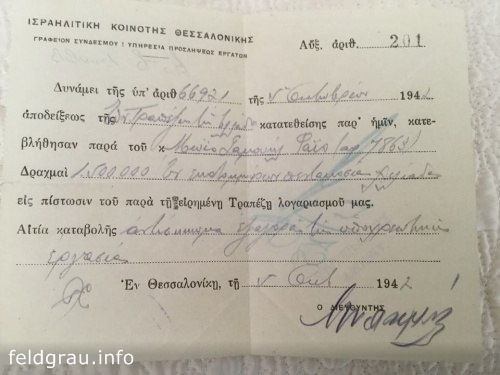 ΙΣΡΑΗΛΙΤΙΚΗ ΚΟΙΝΟΤΗΣ ΘΕΣΣΑΛΟΝΙΚΗΣ
ΓΡΑΦΕΙΟΝ ΣΥΝΔΕΣΜΟΥ : ΥΠΗΡΕΣΙΑ ΠΡΟΣΛΗΨΕΩΣ ΕΡΓΑΤΩΝ
Αὔξ. ἀριθ. 201
Δυνάμει τῆς ὑπ' ἀριθ 66921 τῆς Ὀκτωβρίου 1942
ἀποδείξεως τῆς Τραπέζης κατατεθείσης παρ' ἡμῖν, κατε-
βλήθησαν παρὰ τοῦ κ 7863
Δραχμαὶ 1.500.000 Ἓν ἑκατομμύριον πεντακοσίαι χιλιάδες
εἰς πίστωσιν τοῦ παρὰ τῇ εἰρημένῃ Τραπέζῃ λογαριασμοῦ μας.
Αἰτία καταβολῆς ἀντισήκωμα
ἐργασία
Ἐν Θεσσαλονίκῃ, τῇ Ὀκτ 1942
Ο ΔΙΕΥΘΥΝΤΗΣ
feldgrau.info